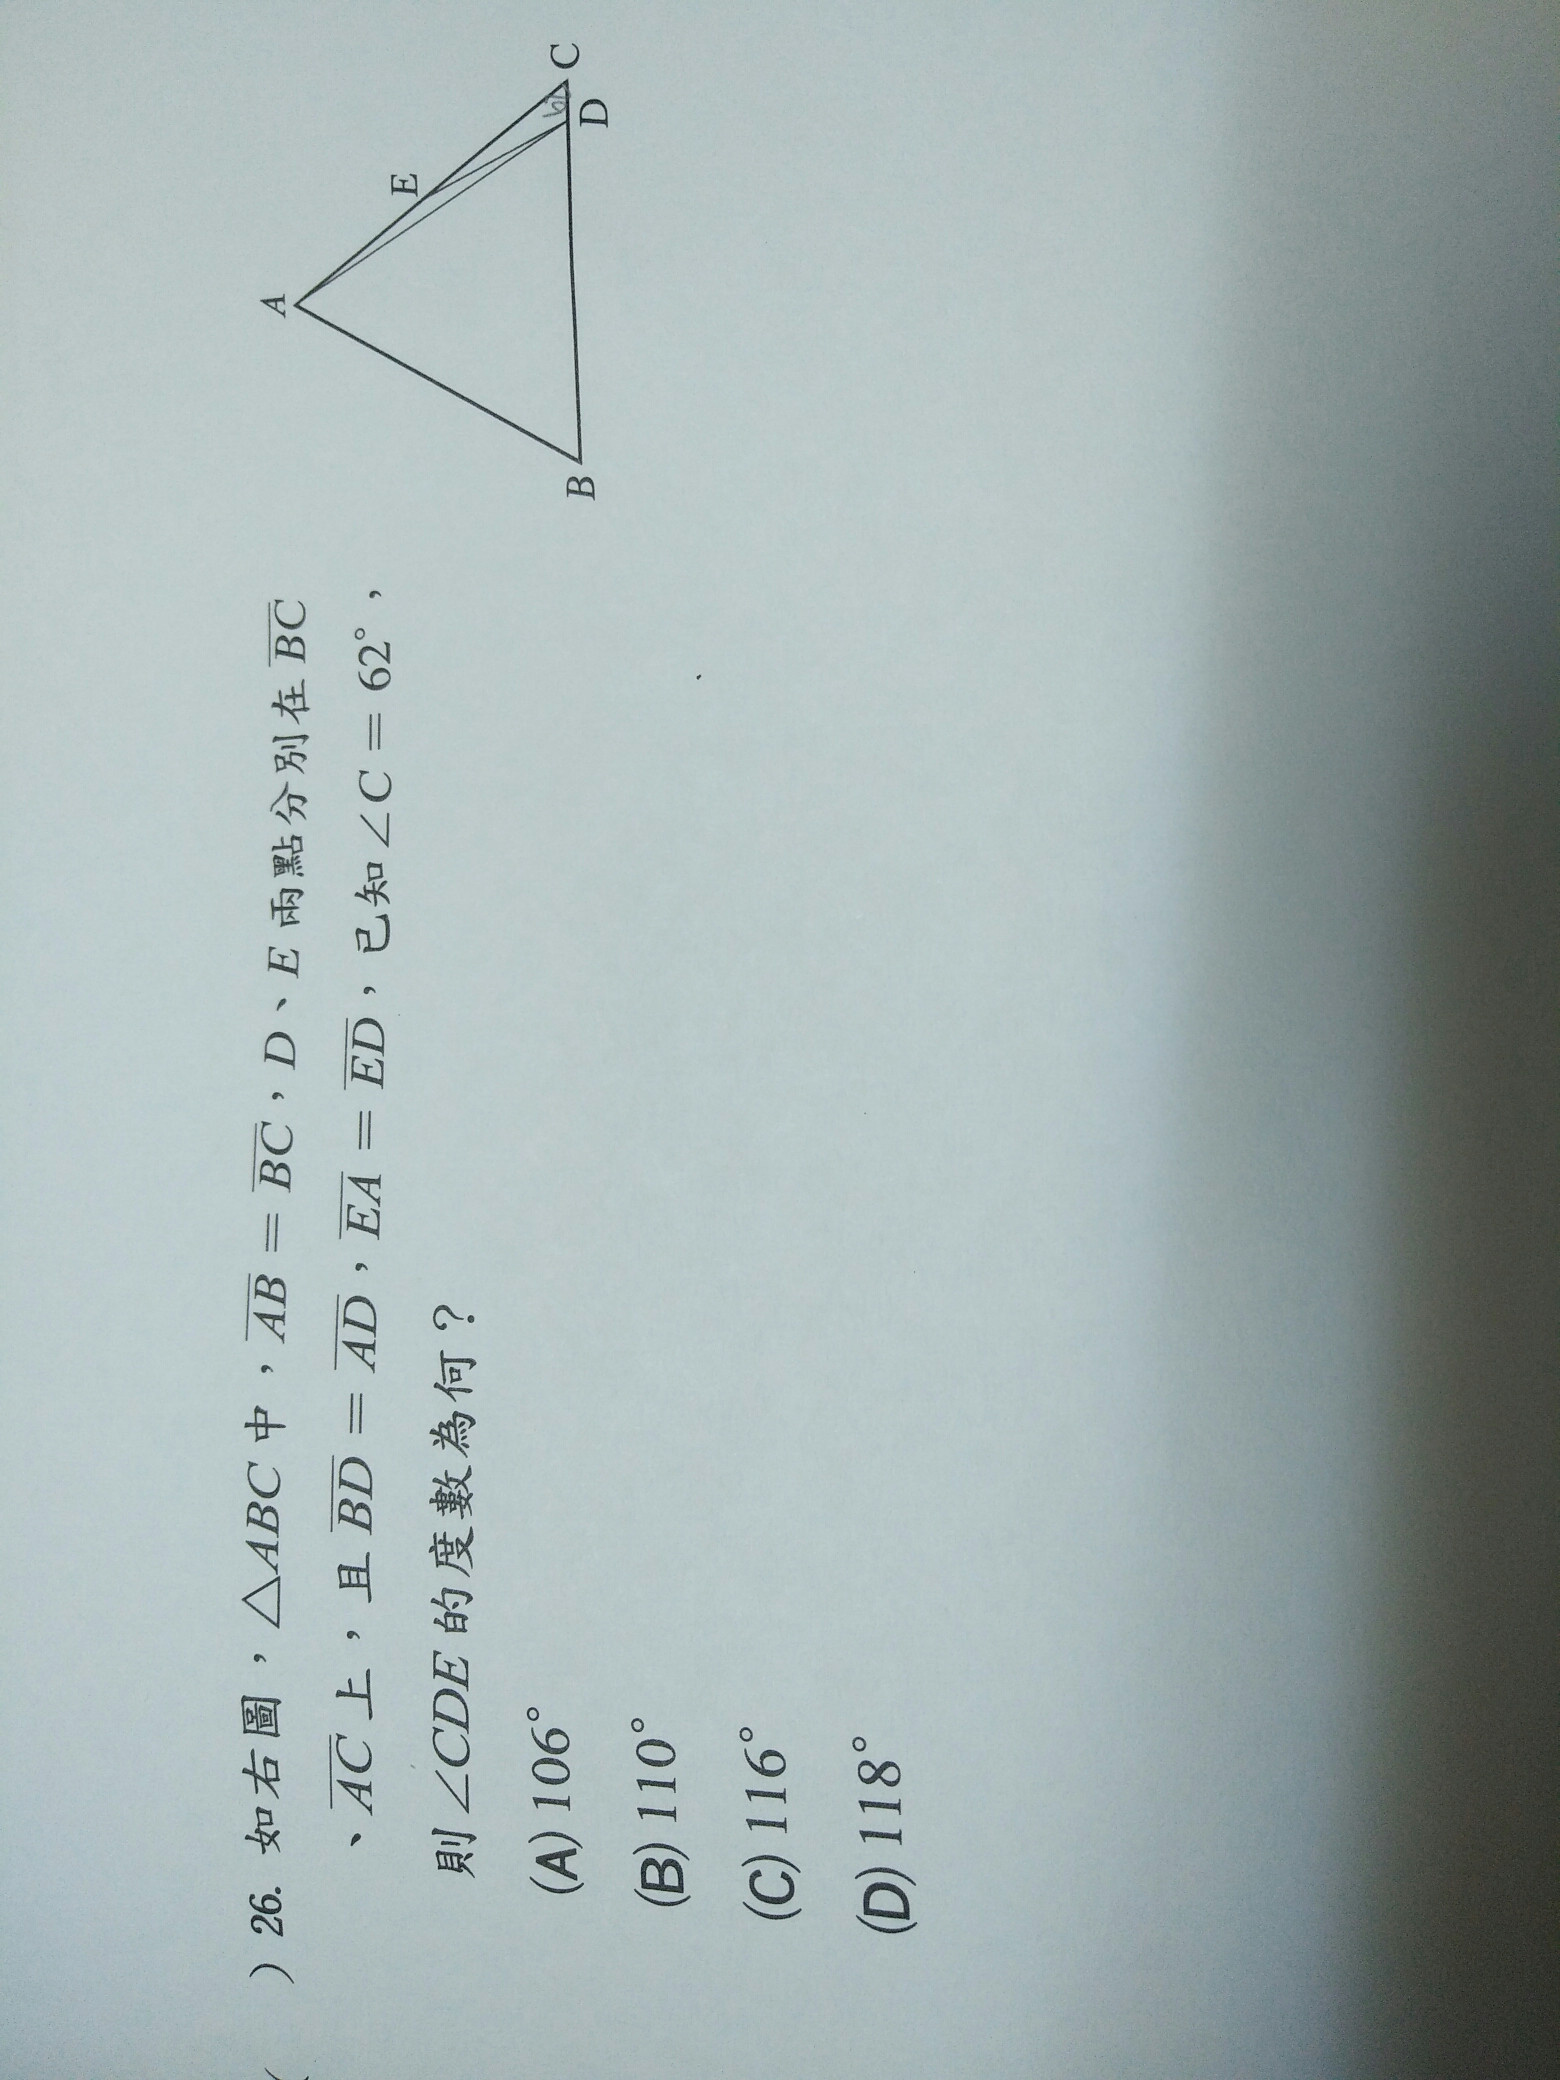 ( ) 26. 如右圖，△ABC 中，AB = BC，D、E 兩點分別在 BC
、AC 上，且 BD = AD，EA = ED，已知 ∠C = 62°，
則 ∠CDE 的度數為何？
(A) 106°
(B) 110°
(C) 116°
(D) 118°
A
E
C
D
B